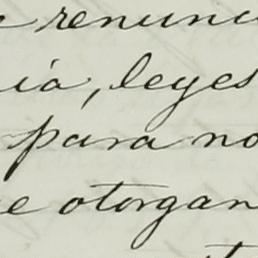 e renunci
ia, leyes
para no
e otorgan